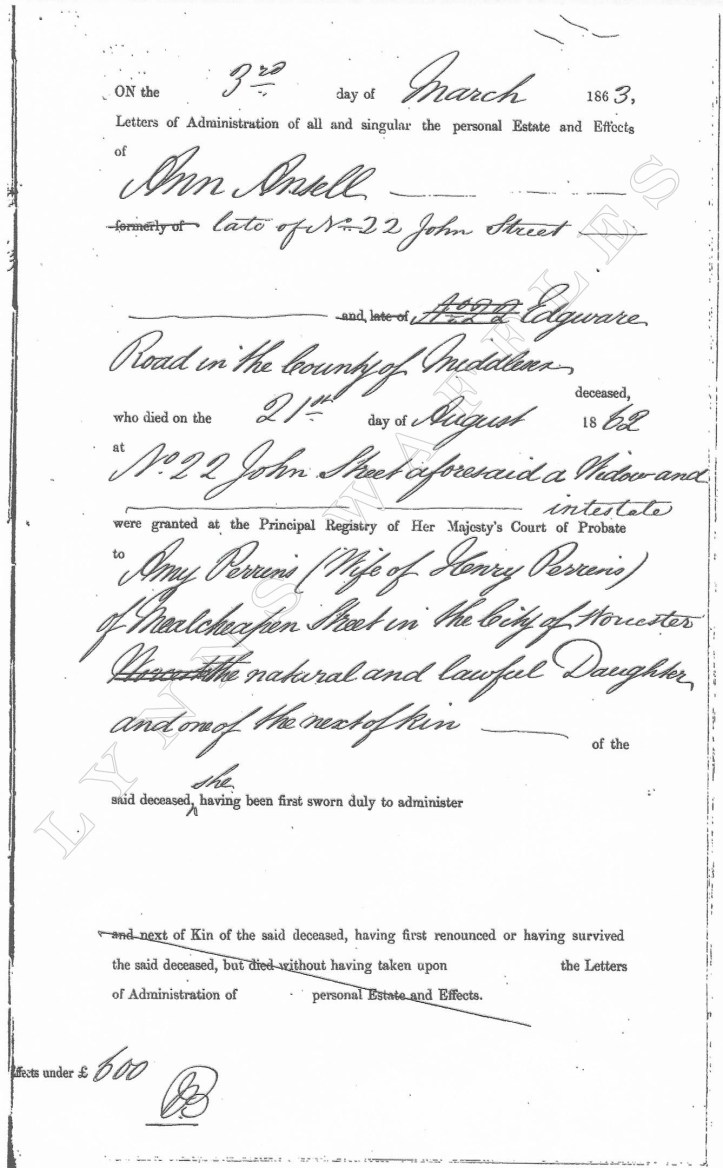 ON the 3rd day of March 1863,
Letters of Administration of all and singular the personal Estate and Effects
of
Ann Ansell
formerly of late of No. 22 John Street
and, late of Edgware
Road in the County of Middlesex
deceased,
who died on the 21st day of August 1862
at
No. 22 John Street aforesaid a Widow and
intestate
were granted at the Principal Registry of Her Majesty's Court of Probate
to
Amy Perrins (Wife of Henry Perrins)
of Mealcheapen Street in the City of Worcester
the natural and lawful Daughter
and one of the next of kin
of the
she
said deceased, having been first sworn duly to administer
and next of Kin of the said deceased, having first renounced or having survived
the said deceased, but died without having taken upon the Letters
of Administration of personal Estate and Effects.
ffects under £ 600
LYNNS WAFFLES